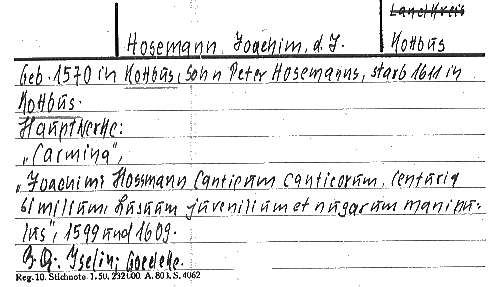 Landkreis
Hosemann, Joachim, d. J.
Kottbus
Geb. 1570 in Kottbus, Sohn Peter Hosemanns, starb 1611 in
Kottbus.
Hauptwerke:
„Carmina",
„Joachimi Hossmann Canticum canticorum, Centuria
similium. Lusuum juvenilium et nugarum manipu-
lus", 1599 und 1609.
Iselin; Goedeke.
Reg. 10. Stichnote. 1. 50. 232000. A. 803. S. 4062